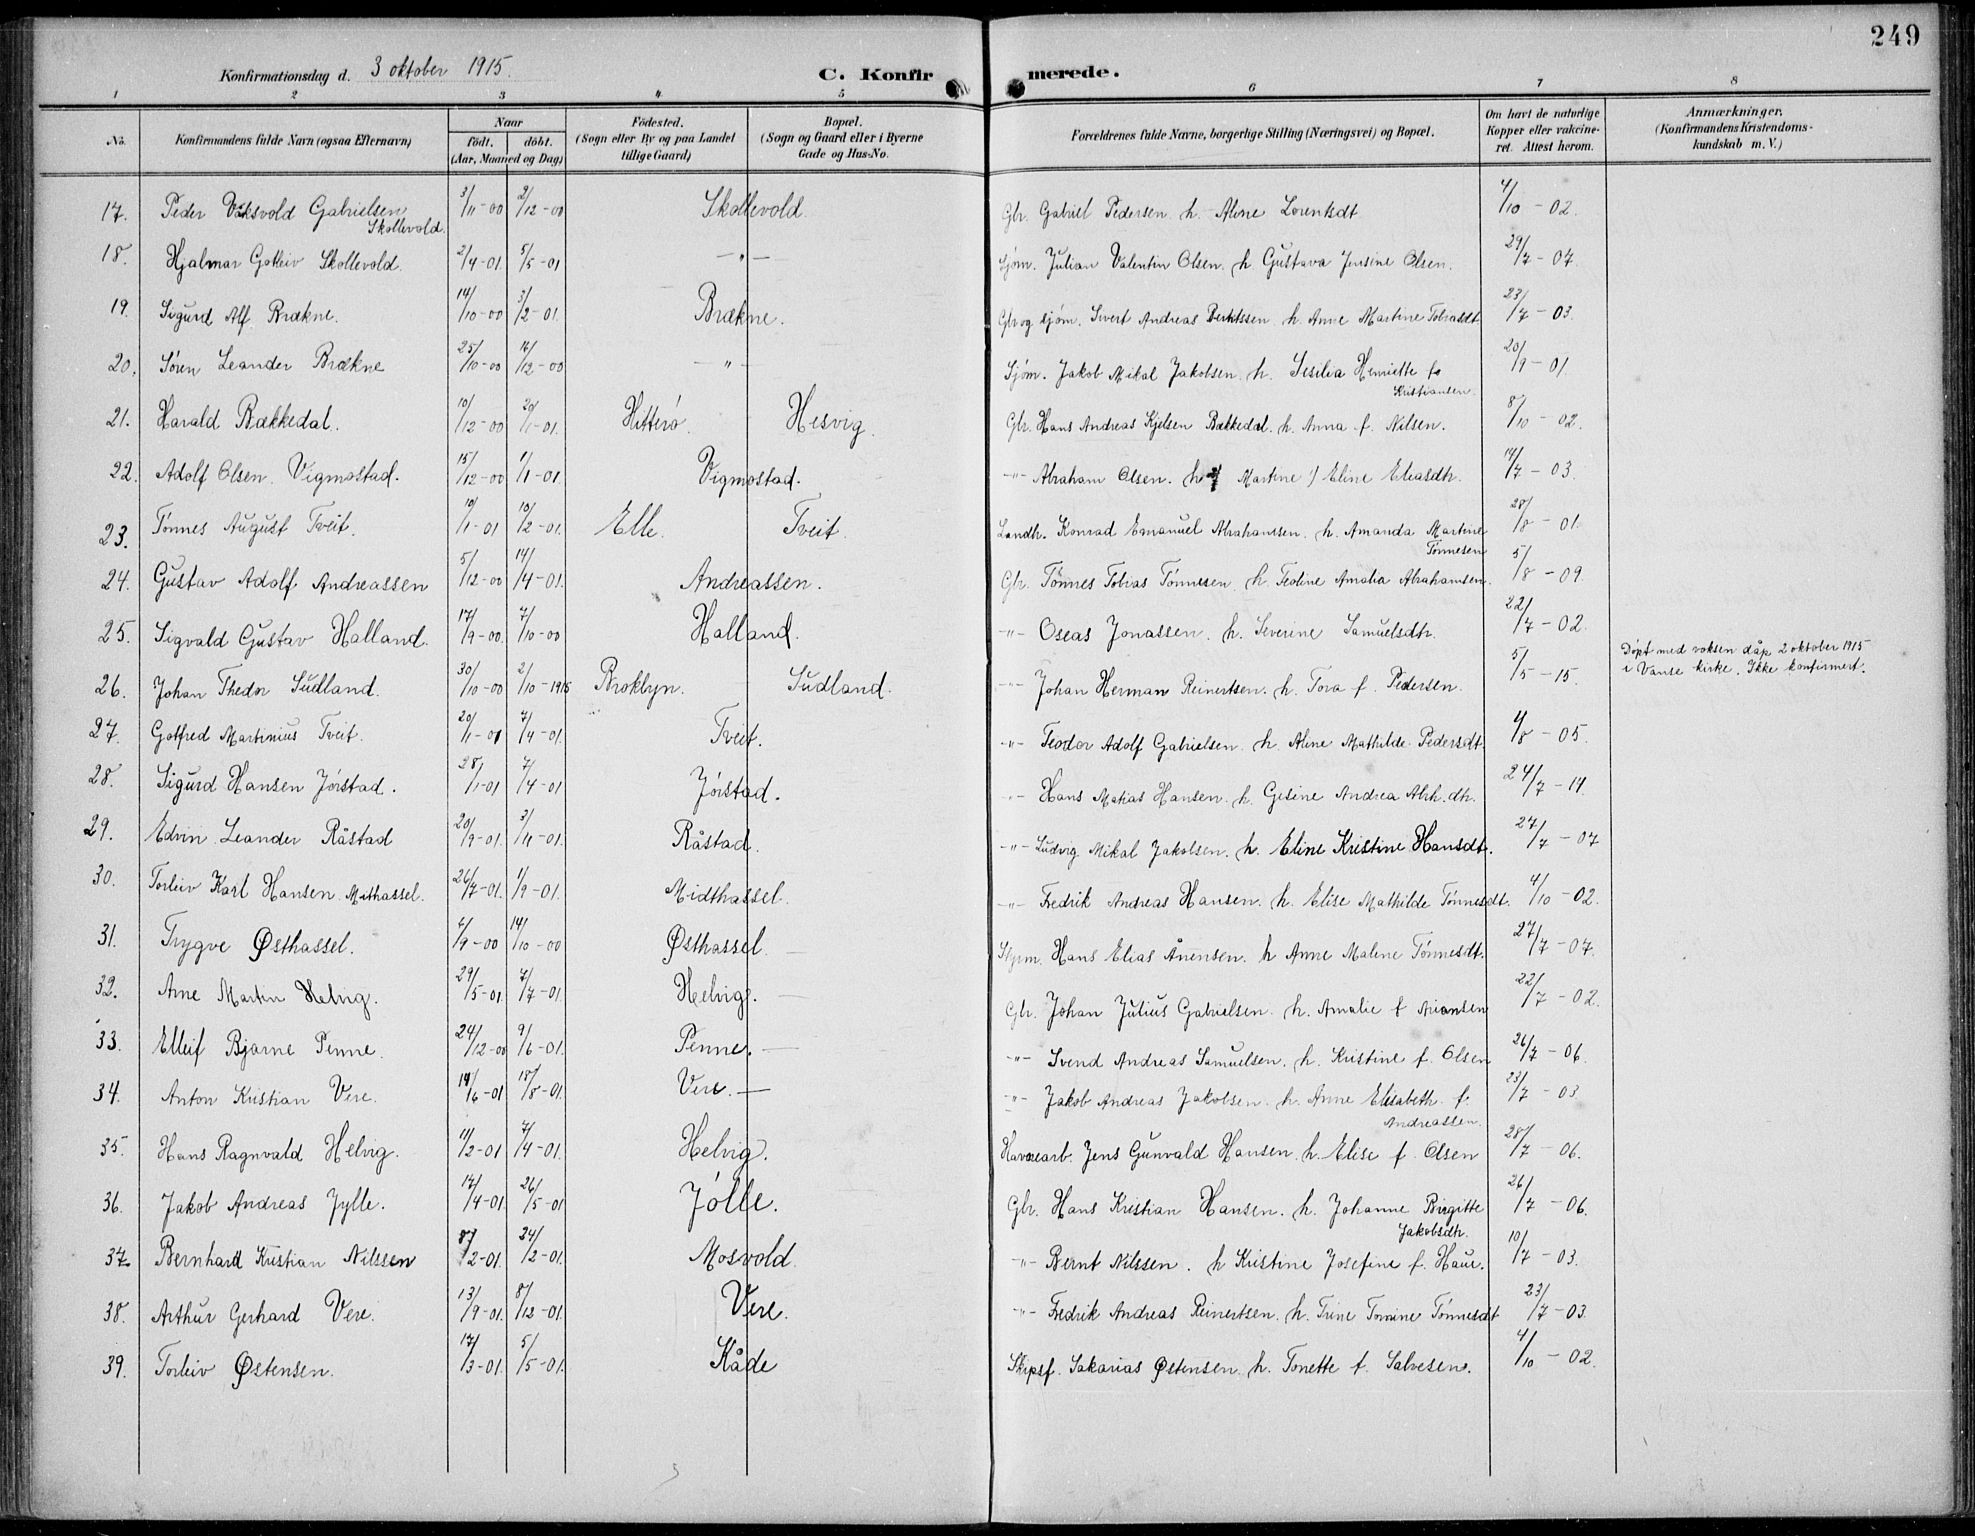 249
Konfirmationsdag d. 3 oktober 1915. C. Konfirmerede.
1 2 3 4 5 6 7 8
No. Konfirmandens fulde Navn (ogsaa Efternavn) Naar født. døbt. (Aar, Maaned og Dag) Fødested. (Sogn eller By og paa Landet tillige Gaard) Bopæl. (Sogn og Gaard eller i Byerne Gade og Hus-No. Forældrenes fulde Navne, borgerlige Stilling (Næringsvei) og Bopæl. Om havt de naturlige Kopper eller vakcineret. Attest herom. Anmærkninger. (Konfirmandens Kristendomskundskab m. V.)
17. Peder Gabrielsen Skollevold. 3/11-00 2/12-00 Skollevold. Gbr. Gabriel Pedersen h. Aline Lorentsdt. 4/10-02.
18. Hjalmar Gotleiv Skollevold. 2/4-01. 5/5-01 -"- Sjøm. Julian Valentin Olsen. h Gustava Jensine Olsen. 29/7-07.
19. Sigurd Alf Brækne. 14/10-00 3/2-01. Brækne. Gbr og sjøm. Sivert Andreas Berntssen. h. Anne Martine Tobiasdt. 23/7-03.
20. Søren Leander Brækne 25/10-00 16/12-00 -"- Sjøm. Jakob Mikal Jakobsen. h. Sesilia Henriette fø Kristiansen. 20/9-01.
21. Harald Bækkedal. 10/12-00 20/1-01. Hitterø. Hesvig. Gbr. Hans Andreas Kjelsen Bækkedal. h. Anna f. Nilsen. 8/10-02.
22. Adolf Olsen Vigmostad. 15/12-00 1/1-01. Vigmostad. -"- Abraham Olsen. h Martine Eline Eliasdtr. 14/7-03.
23. Tønnes August Tveit. 10/1-01 10/2-01. Elle. Tveit. Landh. Konrad Emanuel Abrahamsen. h. Amanda Martine Tønnesen 28/8-01.
24. Gustav Adolf Andreassen 5/12-00 14/4-01. Andreassen. Gbr. Tønnes Tobias Tønnesen h. Teoline Amalia Abrahamsen. 5/8-09.
25. Sigvald Gustav Halland. 17/9-00. 7/10-00 Halland. -"- Oseas Jonassen. h. Severine Samuelsdtr. 22/7-02.
26. Johan Thedor Sudland. 30/10-00 2/10-1915 Broklyn. Sudland. -"- Johan Herman Reinertsen. h. Tora f. Pedersen. 5/5-15. Døpt med voksen dåp 2 oktober 1915 i Vanse kirke. Ikke konfirmert.
27. Gotfred Martinius Tveit. 20/1-01 7/4-01. Tveit. -"- Teodor Adolf Gabrielsen. h. Aline Mathilde Pedersdt. 4/8-05.
28. Sigurd Hansen Jørstad. 28/1-01 7/4-01 Jørstad. -"- Hans Matias Hansen. h. Gesine Andrea Abrh.dtr. 24/7-14.
29. Edvin Leander Råstad 20/9-01. 3/11-01. Råstad. -"- Ludvig Mikal Jakobsen. h. Eline Kristine Hansdt. 27/7-07
30. Torleiv Karl Hansen Mithassel. 26/7-01. 1/9-01. Midthassel. -"- Fredrik Andreas Hansen. h. Elise Mathilde Tønnesdt. 4/10-02.
31. Trygve Østhassel. 4/9-00 14/10-00 Østhassel. Styrm. Hans Elias Ånensen. h Anne Malene Tønnesdt. 27/7-07.
32. Arne Martin Helvig. 29/5-01. 7/7-01. Helvig. Gbr. Johan Julius Gabrielsen. h. Amalie f Ariansen 22/7-02.
33. Elleif Bjarne Penne. 24/12-00 9/6-01. Penne. -"- Svend Andreas Samuelsen. h. Kristine f. Olsen 26/7-06.
34. Anton Kristian Vere. 14/6-01 18/8-01. Vere. -"- Jakob Andreas Jakobsen. h. Anne Elisabeth f. Andreassen. 23/7-03
35. Hans Ragnvald Helvig. 11/2-01 7/4-01. Helvig. Havnearb. Jens Gunvald Hansen. h. Elise f. Olsen 28/7-06.
36. Jakob Andreas Jylle. 17/4-01. 26/5-01 Jølle. Gbr. Hans Kristian Hansen. h. Johanne Birgitte Jakobsdtr. 26/7-06.
37. Bernhard Kristian Nilssen 8/2-01. 24/2-01. Mosvold. -"- Bernt Nilssen. h Kristine Josefine f. Haur. 10/7-03.
38. Arthur Gerhard Vere. 13/9-01. 8/12-01. Vere. -"- Fredrik Andreas Reinertsen. h. Trine Tomine Tønnesdt 23/7-03.
39. Torleiv Østensen. 17/3-01. 5/5-01. Kåde Skipsf. Sakarias Østensen. h. Tonette f. Salvesen. 4/10-02.